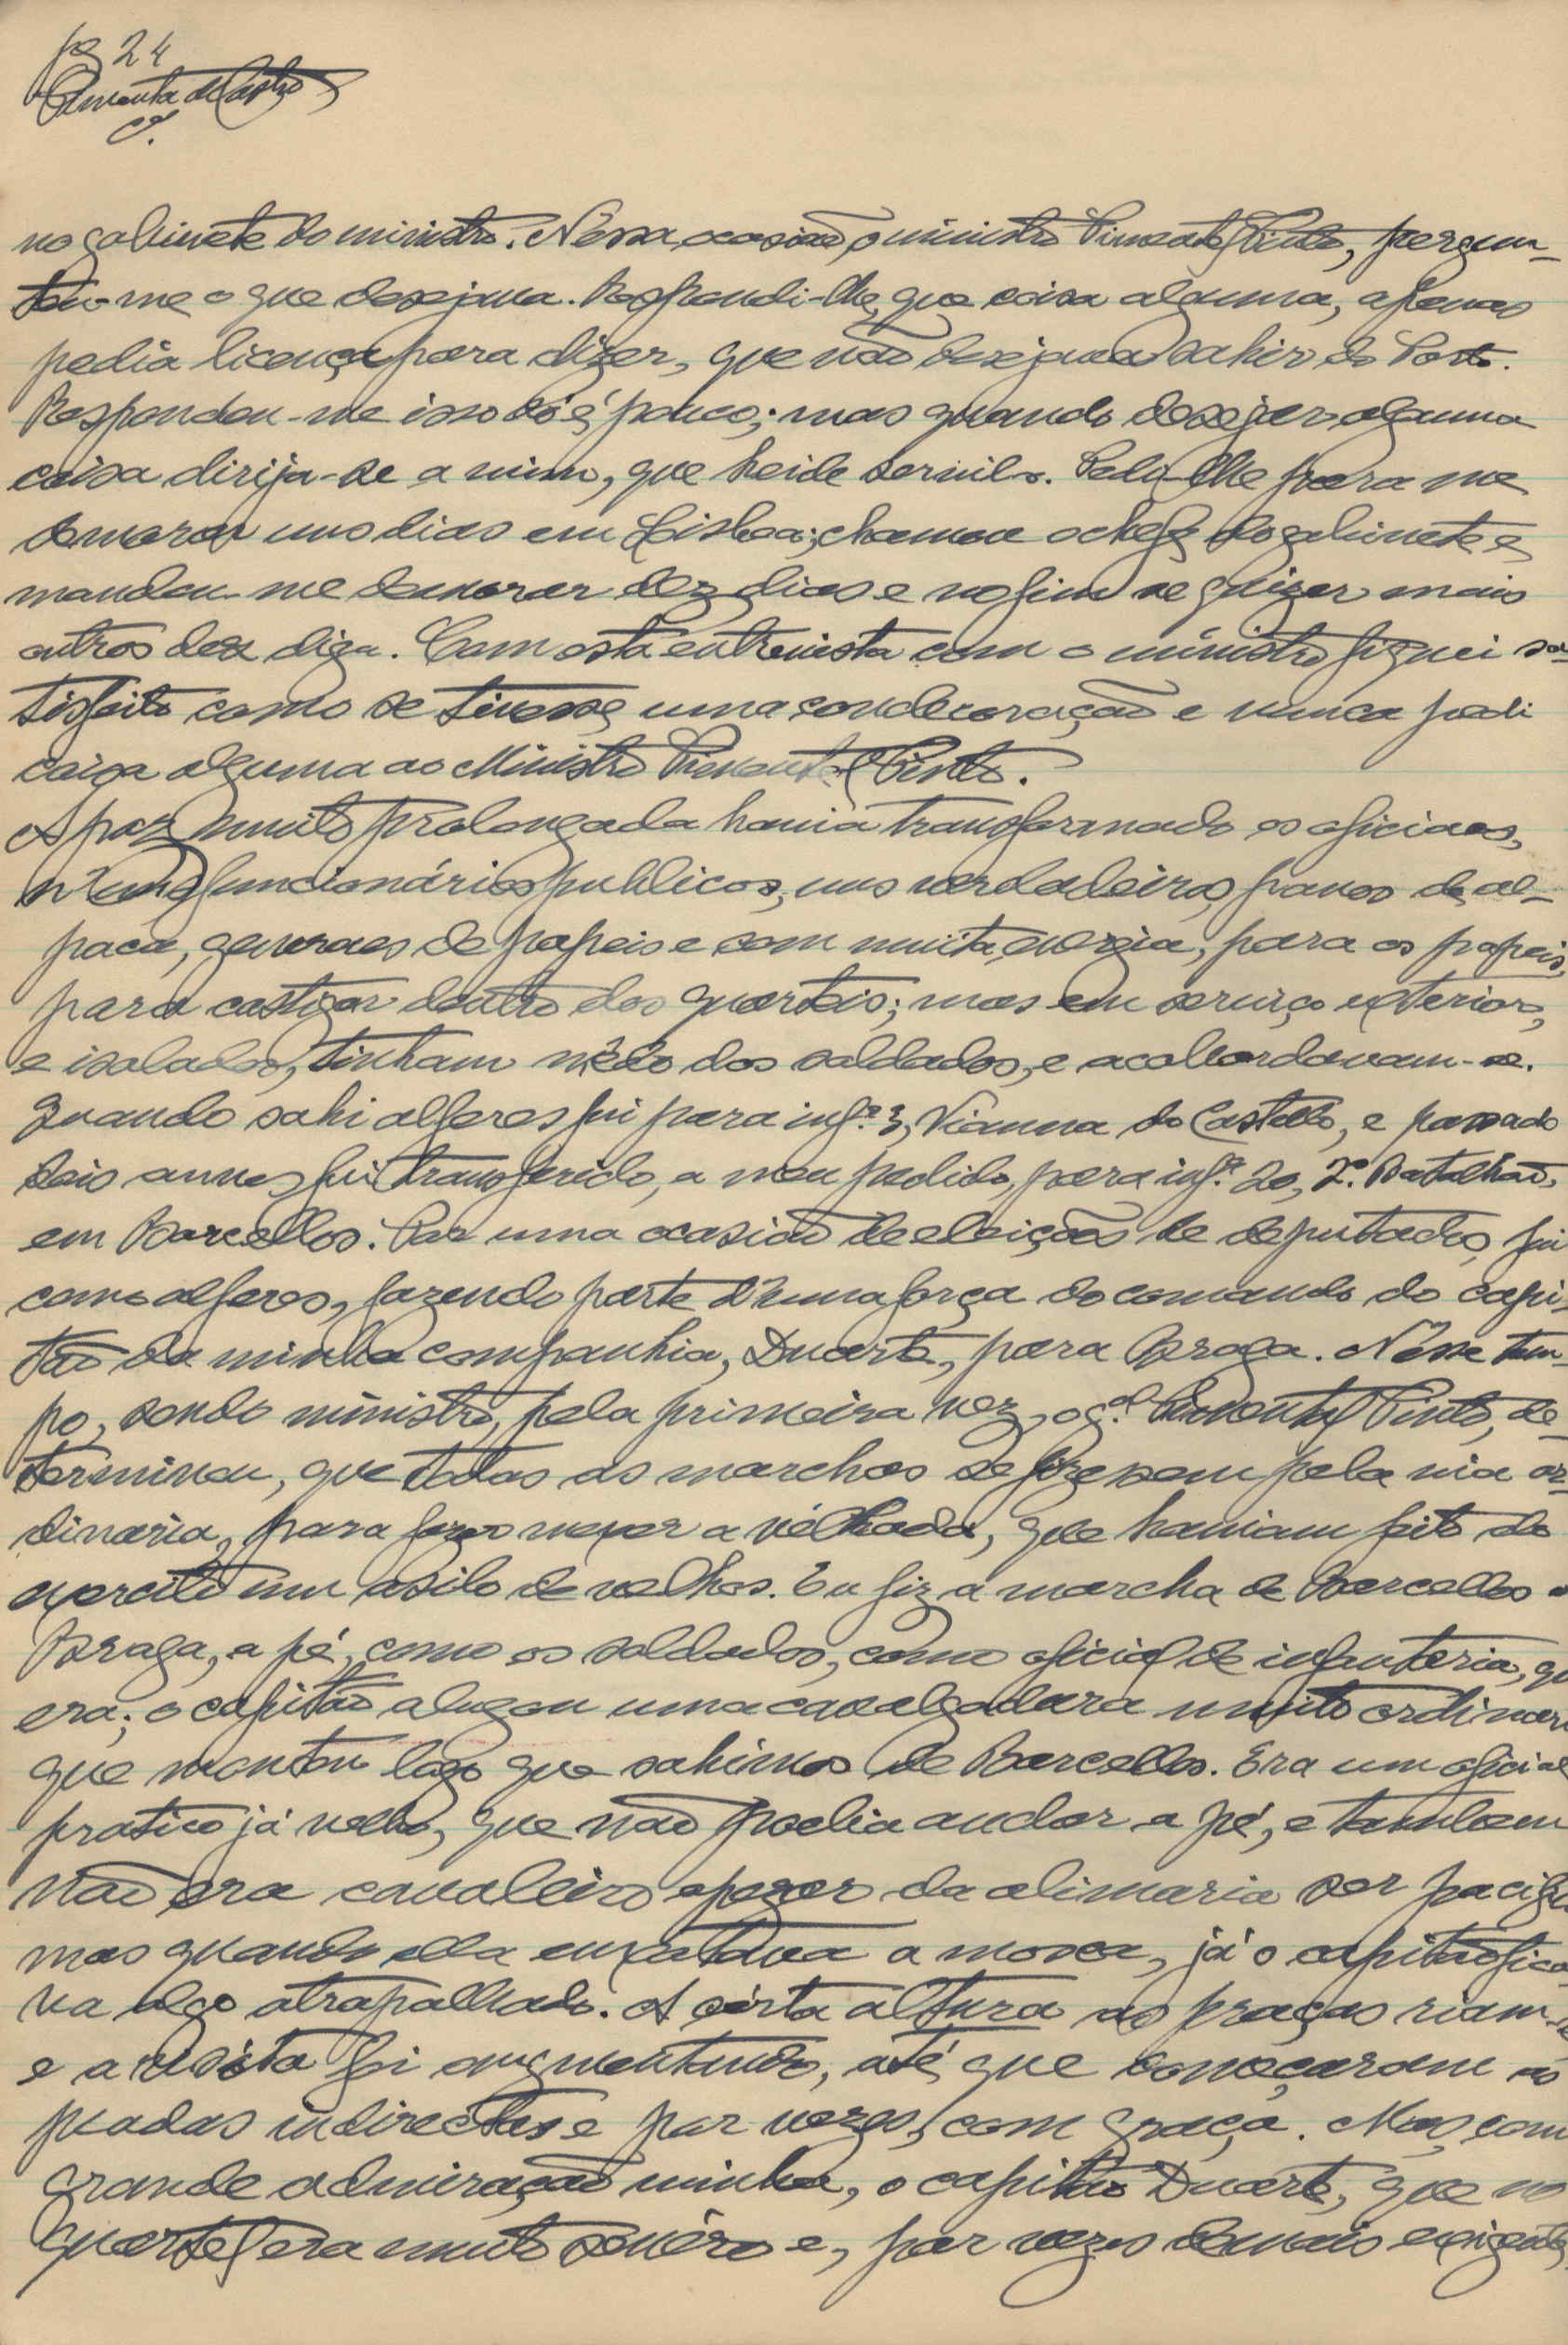 pg 24
Pimenta de Castro
no gabinete do ministro. Néssa ocasião o ministro Pimentel Pinto, pergun-
tou-me o que desejava. Respondi-lhe, que coisa alguma, apenas
pedia licença para dizer, que não desejava sahir do Porto.
Respondeu-me isso só é pouco; mas quando desejar alguma
coisa dirija-se a mim, que heide servilo. Pedi-lhe para me
demorar uns dias em Lisboa; chamou o chefe do gabinete e
mandou-me demorar dez dias e no fim se quizer mais
outros dez diga. Com esta entrevista com o ministro fiquei sa-
tisfeito como se tivesse uma condecoração e nunca pedi
coisa alguma ao Ministro Pimentel Pinto.
A paz muito prolongada havia transformado os oficiaes,
n'uns funcionários publicos, uns verdadeiros, panos de al-
paca, generaes de papeis e com muita energia, para os papeis,
para castigar dentro dos quarteis; mas em serviço exterior,
e isolados, tinham mêdo dos soldados, e acobardavam-se.
Quando sahi alferes fui para infª 3, Vianna do Castello, e passado
dois annos fui transferido, a meu pedido, para infª 20, 2º. Batalhão,
em Barcellos. Por uma ocasião de eleições de deputados, fui
como alferes, fazendo parte d'uma força do comando do capi-
tão da minha companhia, Duarte, para Braga. Nésse tem-
po, sendo ministro, pela primeira vez, o gal Pimentel Pinto, de-
terminou, que todas as marchas se fizessem pela via or-
dinaria, para fazer mexer a velhada, que haviam feito do
exercito um asilo de velhos. Eu fiz a marcha de Barcellos a
Braga, a pé, como os soldados, como oficial de infanteria, que
era; o capitão alugou uma cavalgadura muito ordinaria
que montou logo que sahimos de Barcellos. Era um oficial
pratico já velho, que não podia andar a pé, e tambem
não era cavaleiro apezar da alimaria ser pacifica
mas quando ella enxotava a mosca, já o capitão fica-
va algo atrapalhado. A cérta altura as praças riam-se
e a risóta foi augmentando, até que começaram as
piadas indirectas e por vezes, com graça. Mas, com
grande admiração minha, o capitão Duarte, que no
quartel era muito sevéro e, por vezes demais exigente,